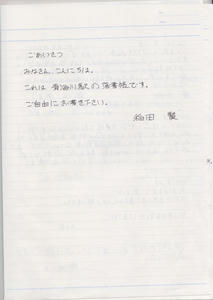 ごあいさつ
みなさん、こんにちは。
これは 青海川駅の落書帳です。
ご自由にお書き下さい。
稲田 賢